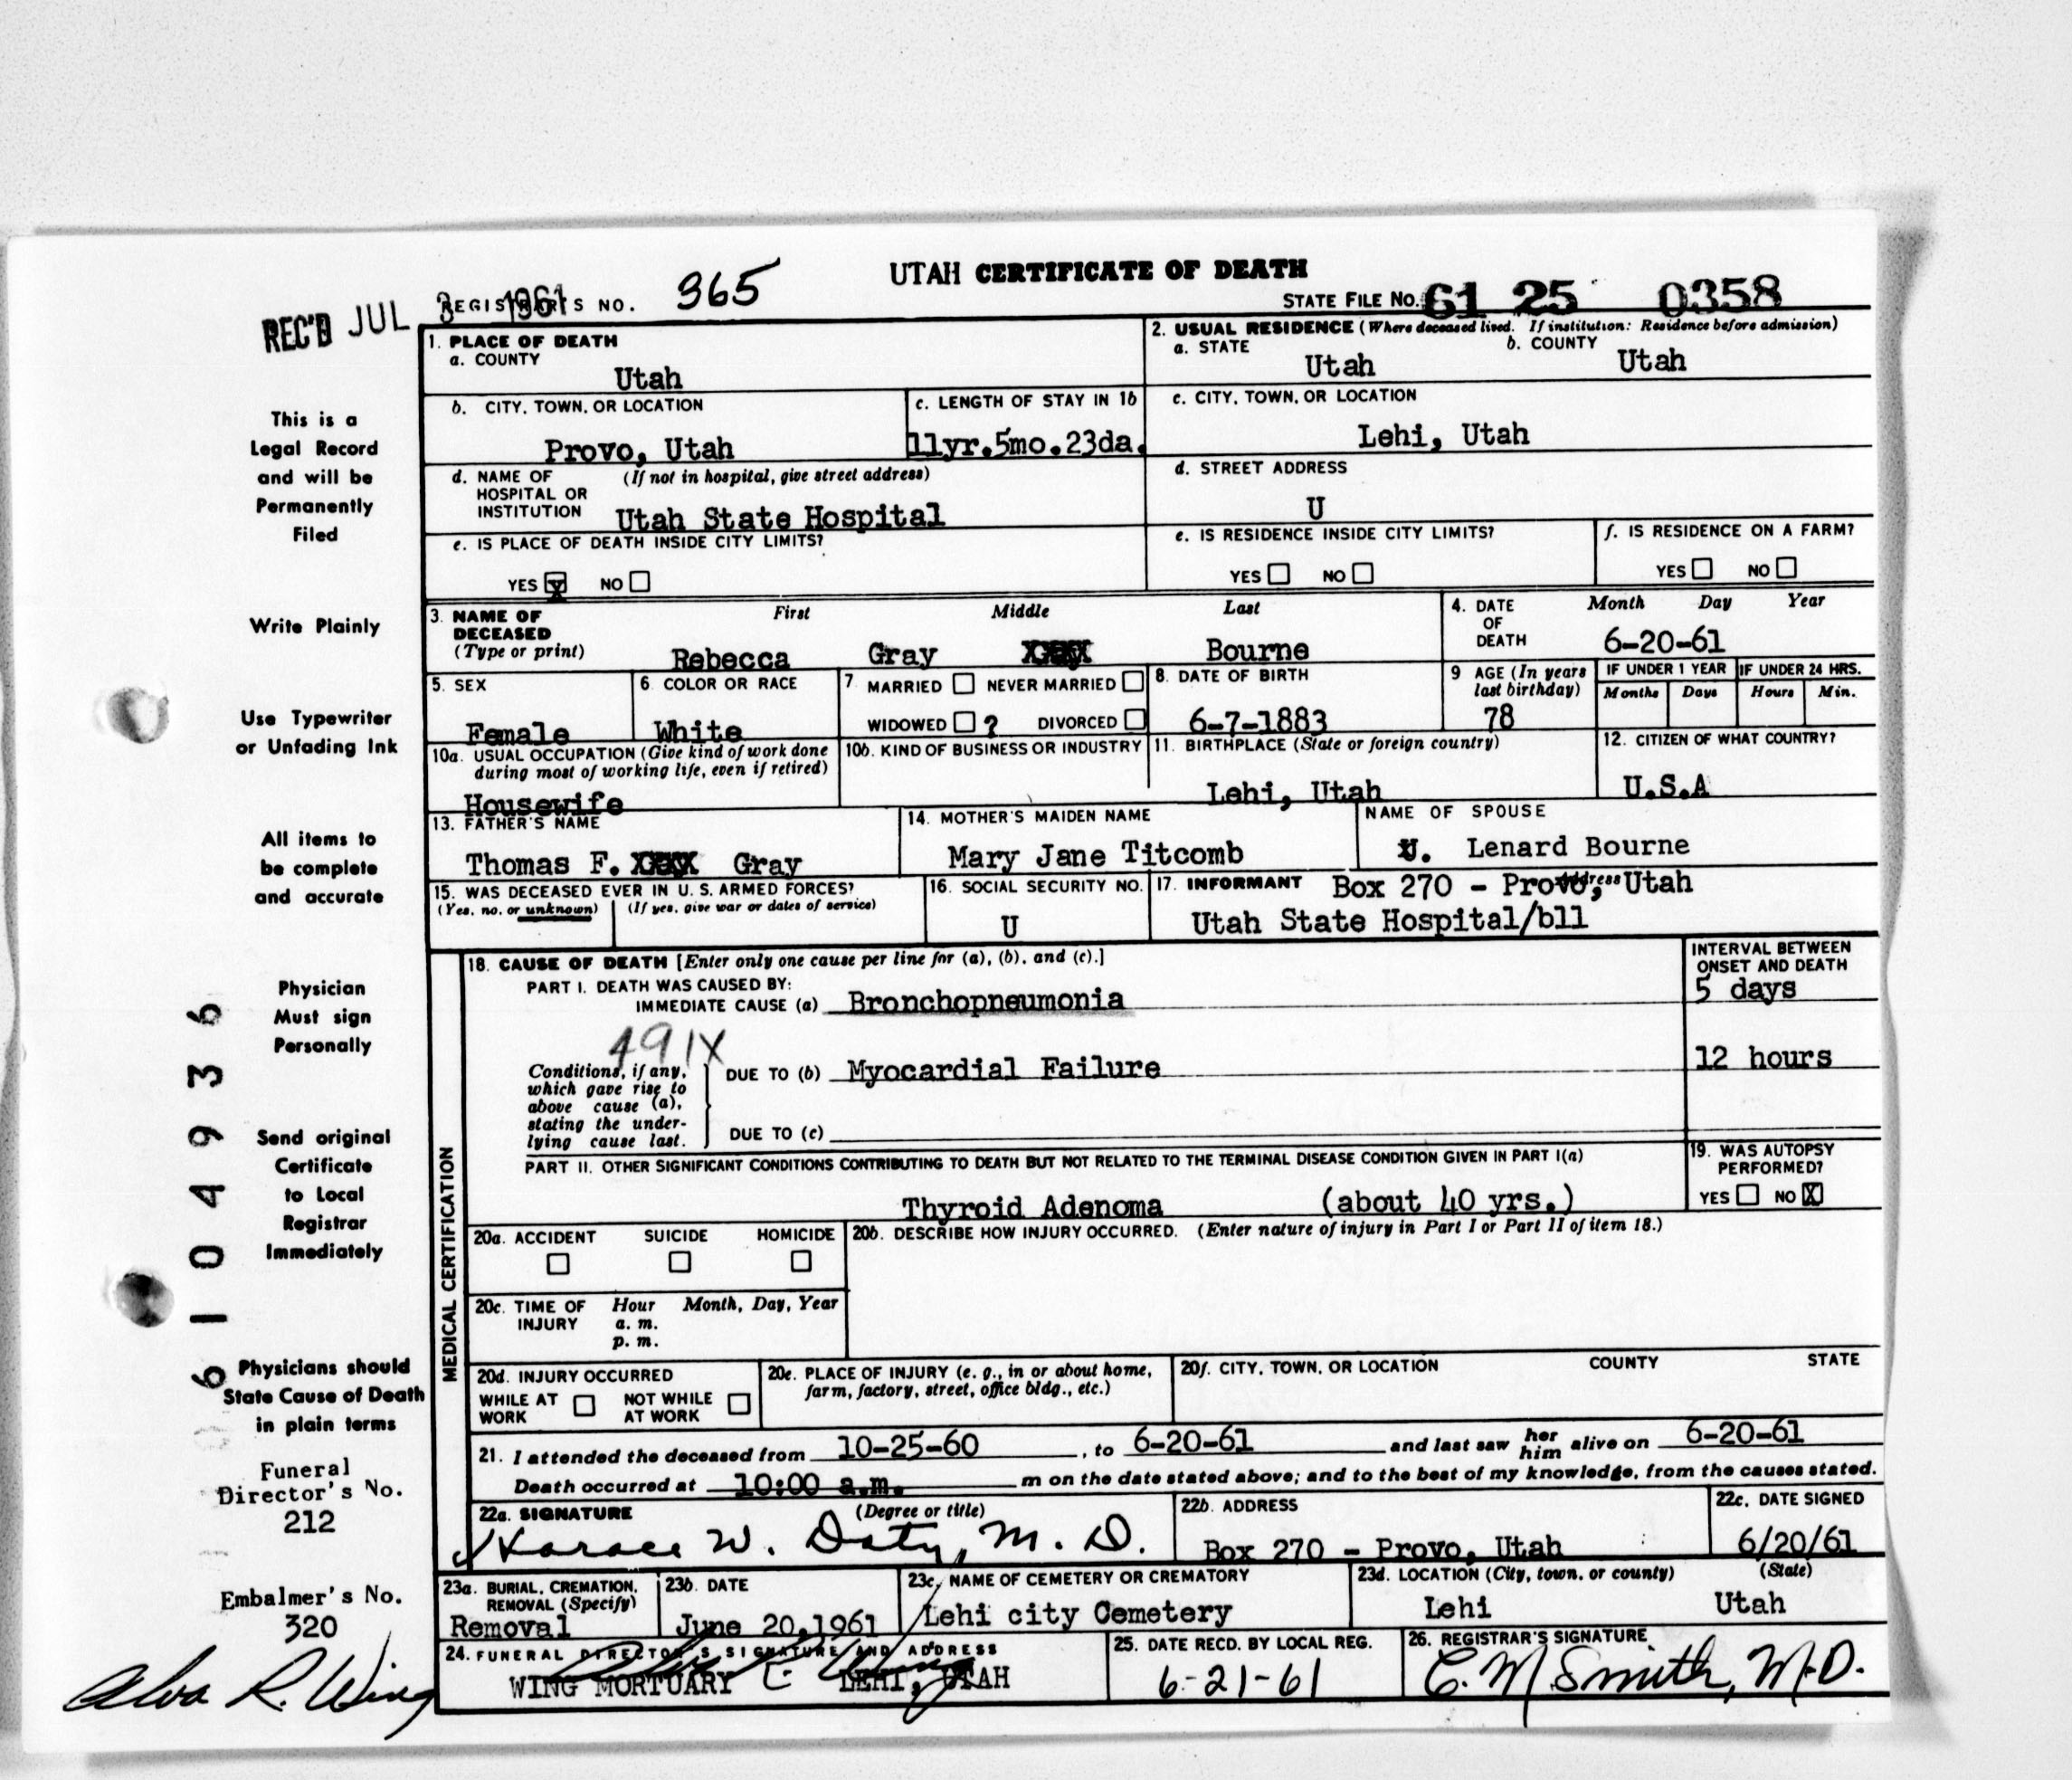 UTAH CERTIFICATE OF DEATH
REC'D JUL 3 1961
REGISTRAR'S NO. 365
STATE FILE No. 61 25 0358
1. PLACE OF DEATH
a. COUNTY
Utah
2. USUAL RESIDENCE (Where deceased lived. If institution: Residence before admission)
a. STATE
Utah
b. COUNTY
Utah
b. CITY, TOWN, OR LOCATION
Provo, Utah
c. LENGTH OF STAY IN 1b
11yr.5mo.23da.
c. CITY, TOWN, OR LOCATION
Lehi, Utah
d. NAME OF HOSPITAL OR INSTITUTION
(If not in hospital, give street address)
Utah State Hospital
d. STREET ADDRESS
U
e. IS PLACE OF DEATH INSIDE CITY LIMITS?
YES X NO
e. IS RESIDENCE INSIDE CITY LIMITS?
YES NO
f. IS RESIDENCE ON A FARM?
YES NO
3. NAME OF DECEASED
(Type or print)
First Middle Last
Rebecca Gray Bourne
4. DATE OF DEATH
Month Day Year
6-20-61
5. SEX
Female
6. COLOR OR RACE
White
7. MARRIED NEVER MARRIED
WIDOWED ? DIVORCED
8. DATE OF BIRTH
6-7-1883
9 AGE (In years last birthday)
78
IF UNDER 1 YEAR
Months Days
IF UNDER 24 HRS.
Hours Min.
10a. USUAL OCCUPATION (Give kind of work done during most of working life, even if retired)
Housewife
10b. KIND OF BUSINESS OR INDUSTRY
11. BIRTHPLACE (State or foreign country)
Lehi, Utah
12. CITIZEN OF WHAT COUNTRY?
U.S.A
13. FATHER'S NAME
Thomas F. Gray
14. MOTHER'S MAIDEN NAME
Mary Jane Titcomb
NAME OF SPOUSE
Lenard Bourne
15. WAS DECEASED EVER IN U. S. ARMED FORCES?
(Yes, no, or unknown) (If yes, give war or dates of service)
16. SOCIAL SECURITY NO.
U
17. INFORMANT Address
Box 270 - Provo, Utah
Utah State Hospital/bll
MEDICAL CERTIFICATION
18. CAUSE OF DEATH [Enter only one cause per line for (a), (b), and (c).]
INTERVAL BETWEEN ONSET AND DEATH
PART I. DEATH WAS CAUSED BY:
IMMEDIATE CAUSE (a) Bronchopneumonia
5 days
491X
Conditions, if any, which gave rise to above cause (a), stating the underlying cause last.
DUE TO (b) Myocardial Failure
12 hours
DUE TO (c)
PART II. OTHER SIGNIFICANT CONDITIONS CONTRIBUTING TO DEATH BUT NOT RELATED TO THE TERMINAL DISEASE CONDITION GIVEN IN PART I(a)
Thyroid Adenoma (about 40 yrs.)
19. WAS AUTOPSY PERFORMED?
YES NO X
20a. ACCIDENT SUICIDE HOMICIDE
20b. DESCRIBE HOW INJURY OCCURRED. (Enter nature of injury in Part I or Part II of item 18.)
20c. TIME OF INJURY
Hour Month, Day, Year
a. m.
p. m.
20d. INJURY OCCURRED
WHILE AT WORK NOT WHILE AT WORK
20e. PLACE OF INJURY (e. g., in or about home, farm, factory, street, office bldg., etc.)
20f. CITY, TOWN, OR LOCATION COUNTY STATE
21. I attended the deceased from 10-25-60, to 6-20-61 and last saw her him alive on 6-20-61
Death occurred at 10:00 a.m. m on the date stated above; and to the best of my knowledge, from the causes stated.
22a. SIGNATURE (Degree or title)
Horace W. Doty, M. D.
22b. ADDRESS
Box 270 - Provo, Utah
22c. DATE SIGNED
6/20/61
23a. BURIAL, CREMATION, REMOVAL (Specify)
Removal
23b. DATE
June 20,1961
23c. NAME OF CEMETERY OR CREMATORY
Lehi city Cemetery
23d. LOCATION (City, town, or county) (State)
Lehi Utah
24. FUNERAL DIRECTOR'S SIGNATURE AND ADDRESS
WING MORTUARY LEHI, UTAH
25. DATE RECD. BY LOCAL REG.
6-21-61
26. REGISTRAR'S SIGNATURE
C. M Smith, M.D.
This is a
Legal Record
and will be
Permanently
Filed
Write Plainly
Use Typewriter
or Unfading Ink
All items to
be complete
and accurate
Physician
Must sign
Personally
Send original
Certificate
to Local
Registrar
Immediately
Physicians should
State Cause of Death
in plain terms
Funeral
Director's No.
212
Embalmer's No.
320
Alva R. Wing
6104936